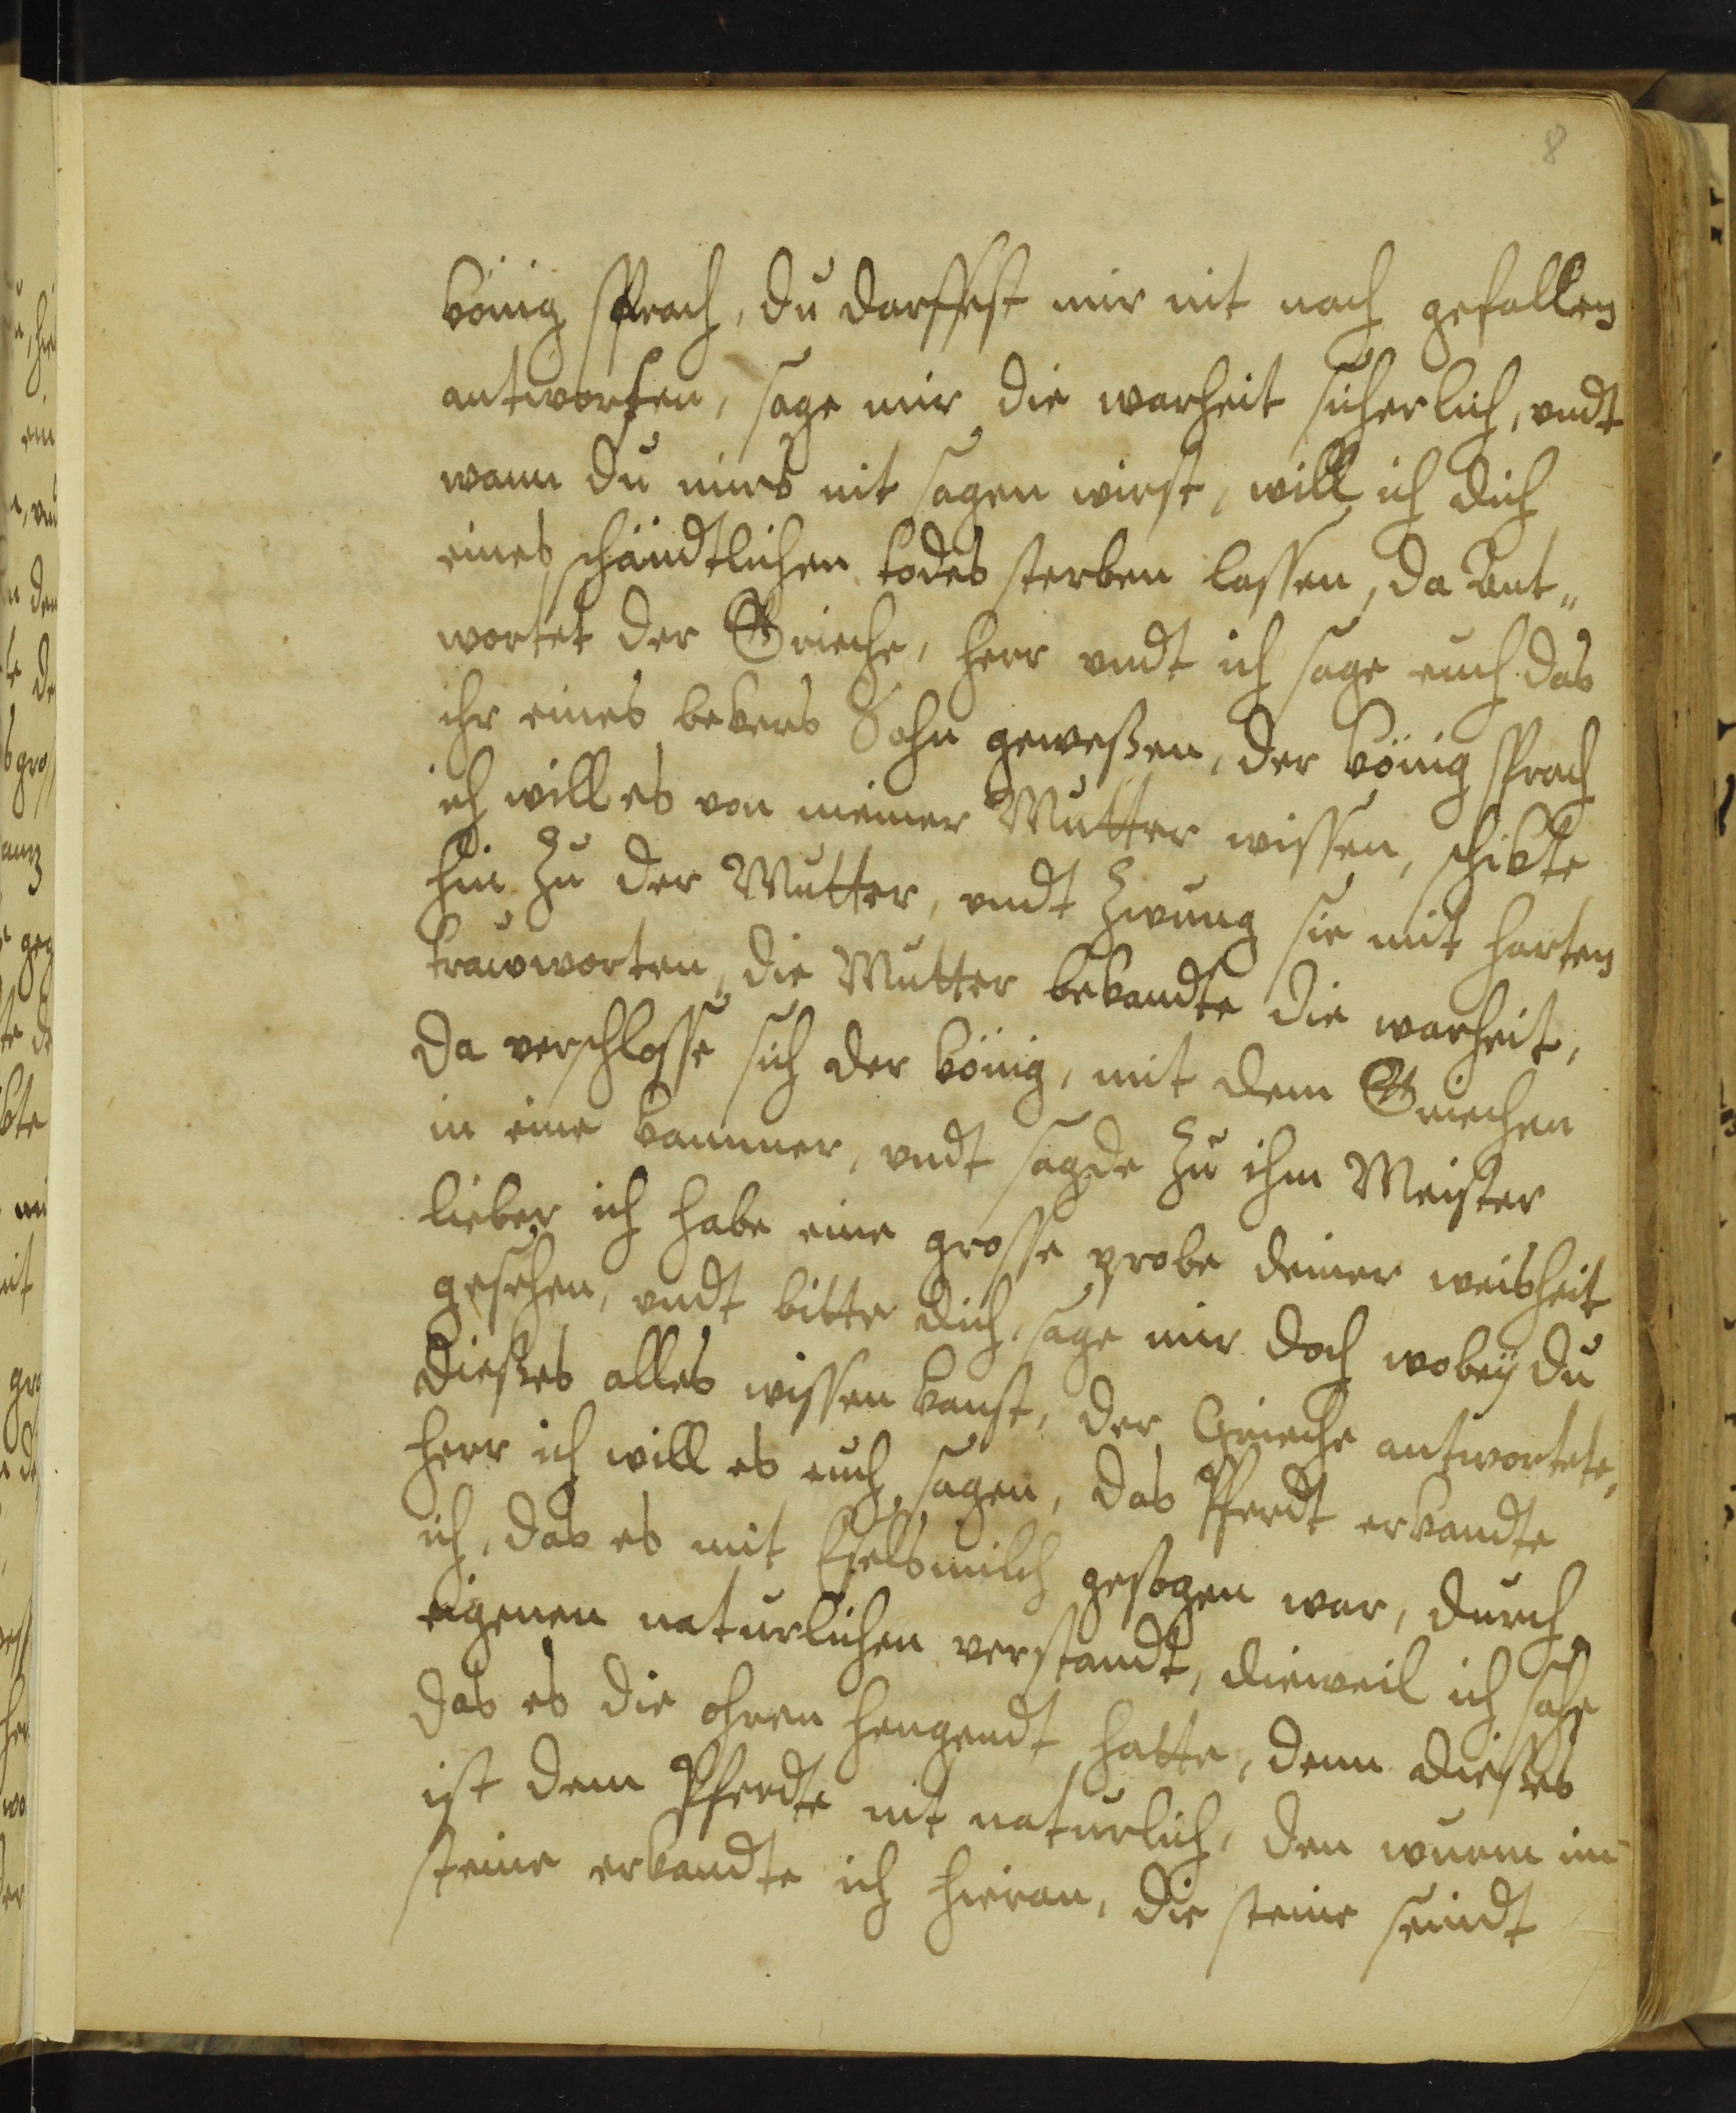 8
könig sprach, du darffest mir nit nach gefallen
antworten, sage mir die warheit sicherlich, vndt
wann du mirs nit sagen wirst, will ich dich
eines schändtlichen todes sterben lassen, da Ant„
wortet der Grieche, herr vndt ich sage euch das
ihr eines bekers Sohn geweßen, der könig sprach
ich will es von meiner Mutter wissen, schikte
hin zu der Mutter, vndt zwung sie mit harten
trauworten, die Mutter bekandte die warheit,
da verschlosse sich der könig, mit dem Griechen
in eine kammer, vndt sagde zu ihm Meister
lieber ich habe eine grosse probe deiner weisheit
gesehen, vndt bitte dich, sage mir doch wobey du
dießes alles wissen kanst, der Grieche antwortete,
herr ich will es euch sagen, das Pferdt erkandte
ich, das es mit Eselsmilch gesogen war, durch
eigenen naturlichen verstandt, dieweil ich sahe
das es die ohren hengendt hatte, denn dießes
ist dem Pferdte nit naturlich, den wurm im
steine erkandte ich hieran, die steine seindt